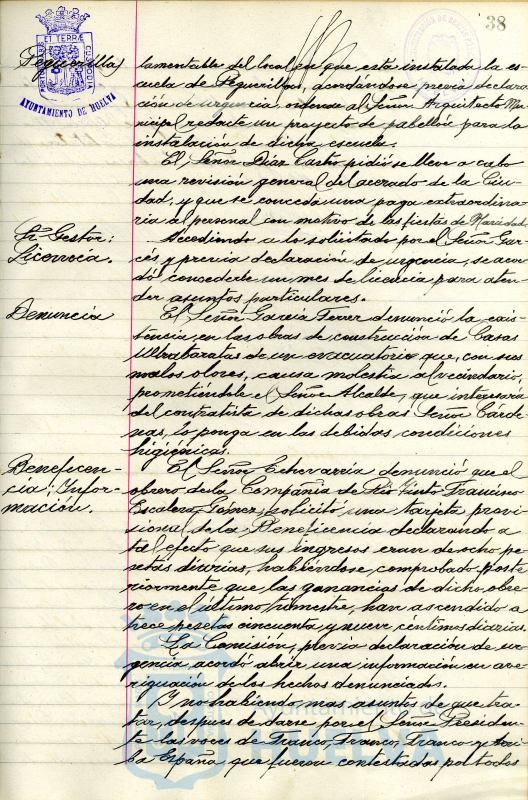 38
ET TERRÆ
CUSTODIA
AYUNTAMIENTO DE HUELVA
Peguerillas
lamentable del local en que está instalada la es
cuela de Peguerillas, acordándose previa declara
ción de urgencia, ordenar al Señor Arquitecto Mu
nicipal redacte un proyecto de pabellón para la
instalación de dicha escuela.
El Señor Díaz Castro pidió se lleve a cabo
una revisión general del acerado de la Ciu
dad, y que se conceda una paga extraordina
ria al personal con motivo de las fiestas de Navidad.
Sr. Gestor:
Licencia.
Accediendo a lo solicitado por el Señor Gar
cés y previa declaración de urgencia, se acor
dó concederle un mes de licencia para aten
der asuntos particulares.
Denuncia
El Señor García Ferrer denunció la exis
tencia, en las obras de construcción de Casas
Ultrabaratas de un evacuatorio que, con sus
malos olores, causa molestia al vecindario,
prometiéndole el Señor Alcalde, que interesará
del contratista de dichas obras Señor Cárde
nas, lo ponga en las debidas condiciones
higiénicas.
Beneficen-
cia: Infor-
mación.
El Señor Echevarria denunció que el
obrero de la Compañia de Rio Tinto Francisco
Escalera, solicitó una tarjeta provi
sional de la Beneficencia declarando a
tal efecto que sus ingresos eran de ocho pe
setas diarias, habiéndose comprobado poste
riormente que las ganancias de dicho obre
ro en el último trimestre, han ascendido a
trece pesetas cincuenta y nueve céntimos diarias.
La Comisión, previa declaración de ur
gencia, acordó abrir una información en ave
riguación de los hechos denunciados.
Y no habiendo mas asuntos de que tra
tar, despues de darse por el Señor Presiden
te las voces de Franco, Franco, Franco y Arri
ba España que fueron contestadas por todos
Ayuntamiento de
HUELVA